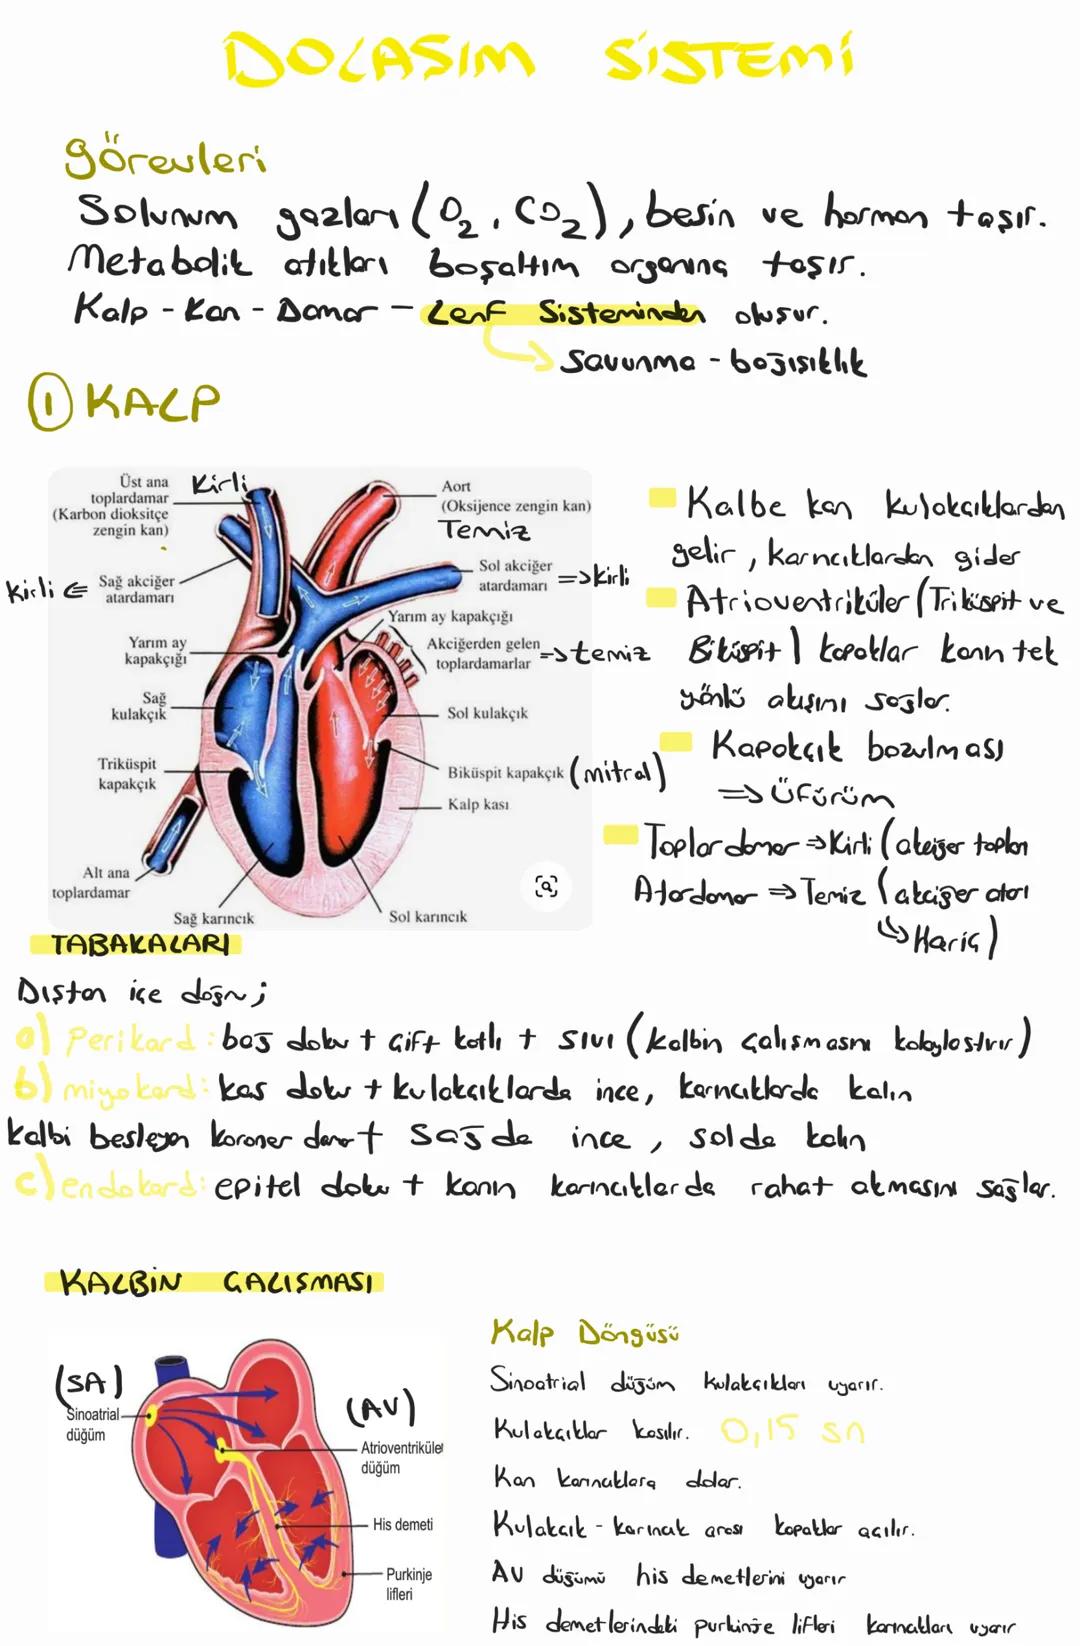 DOLAŞIM SİSTEMİ
görevleri
Solunum gazları (O₂, CO₂), besin ve hormon taşır.
Metabolik atıkları boşaltım organına taşır.
Kalp - Kan - Damar - Lenf Sisteminden oluşur.
Savunma - bağışıklık
① KALP
Üst ana toplardamar (Karbon dioksitçe zengin kan)
Kirli
Aort (Oksijence zengin kan)
Temiz
Kirli ⇐ Sağ akciğer atardamarı
Sol akciğer atardamarı => Kirli
Yarım ay kapakçığı
Yarım ay kapakçığı
Akciğerden gelen toplardamarlar => temiz
Sağ kulakçık
Sol kulakçık
Triküspit kapakçık
Biküspit kapakçık (mitral)
Kalp kası
Alt ana toplardamar
Sağ karıncık
Sol karıncık
Kalbe kan kulakçıklardan
gelir, karıncıklardan gider
Atrioventriküler (Triküspit ve
Biküspit) kapaklar kanın tek
yönlü akışını sağlar.
Kapakçık bozulması
=> Üfürüm
Toplardamar => Kirli (akciğer toplar
Atardamar => Temiz (akciğer atar
↳ Hariç)
TABAKALARI
Dıştan içe doğru;
a) Perikard: bağ doku + çift katlı + sıvı (kalbin çalışmasını kolaylaştırır)
b) miyokard: kas doku + kulakçıklarda ince, karıncıklarda kalın
kalbi besleyen koroner damar + sağda ince, solda kalın
c) endokard: epitel doku + kanın karıncıklarda rahat akmasını sağlar.
KALBİN ÇALIŞMASI
(SA)
Sinoatrial düğüm
(AV)
Atrioventriküler düğüm
His demeti
Purkinje lifleri
Kalp Döngüsü
Sinoatrial düğüm kulakçıkları uyarır.
Kulakçıklar kasılır. 0,15 sn
Kan karıncıklara dolar.
Kulakcık - karıncık arası kapaklar açılır.
AV düğümü his demetlerini uyarır
His demetlerindeki purkinje lifleri karıncıkları uyarır